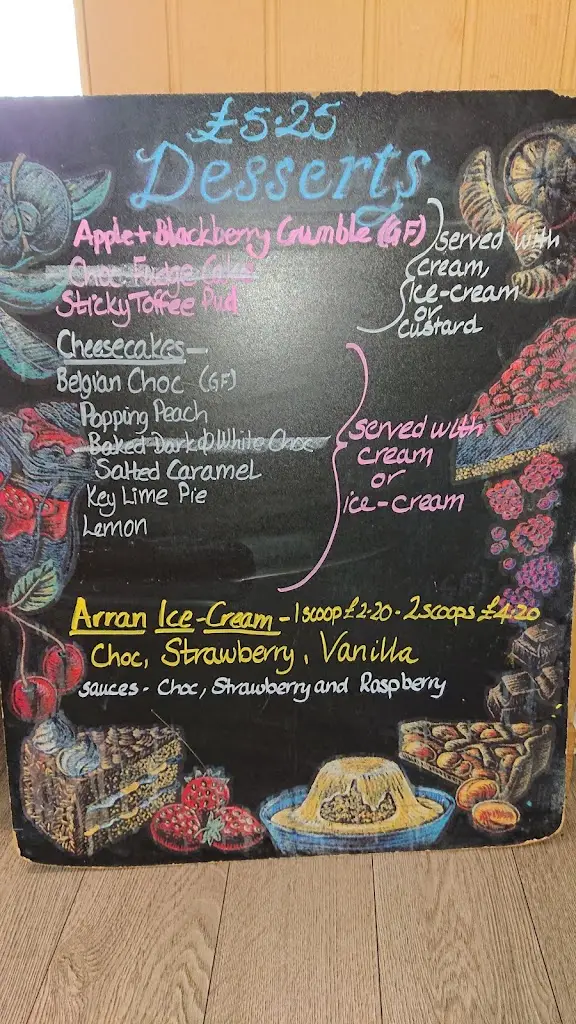 £5.25
Desserts
Apple + Blackberry Crumble (GF)
Choc Fudge Cake
Sticky Toffee Pud
served with
cream,
Ice-cream
or
custard
Cheesecakes -
Belgian Choc (GF)
Popping Peach
Baked Dark & White Choc
Salted Caramel
Key Lime Pie
Lemon
served with
cream
or
ice-cream
Arran Ice-Cream - 1 scoop £2.20 - 2 scoops £4.20
Choc, Strawberry, Vanilla
sauces - Choc, Strawberry and Raspberry